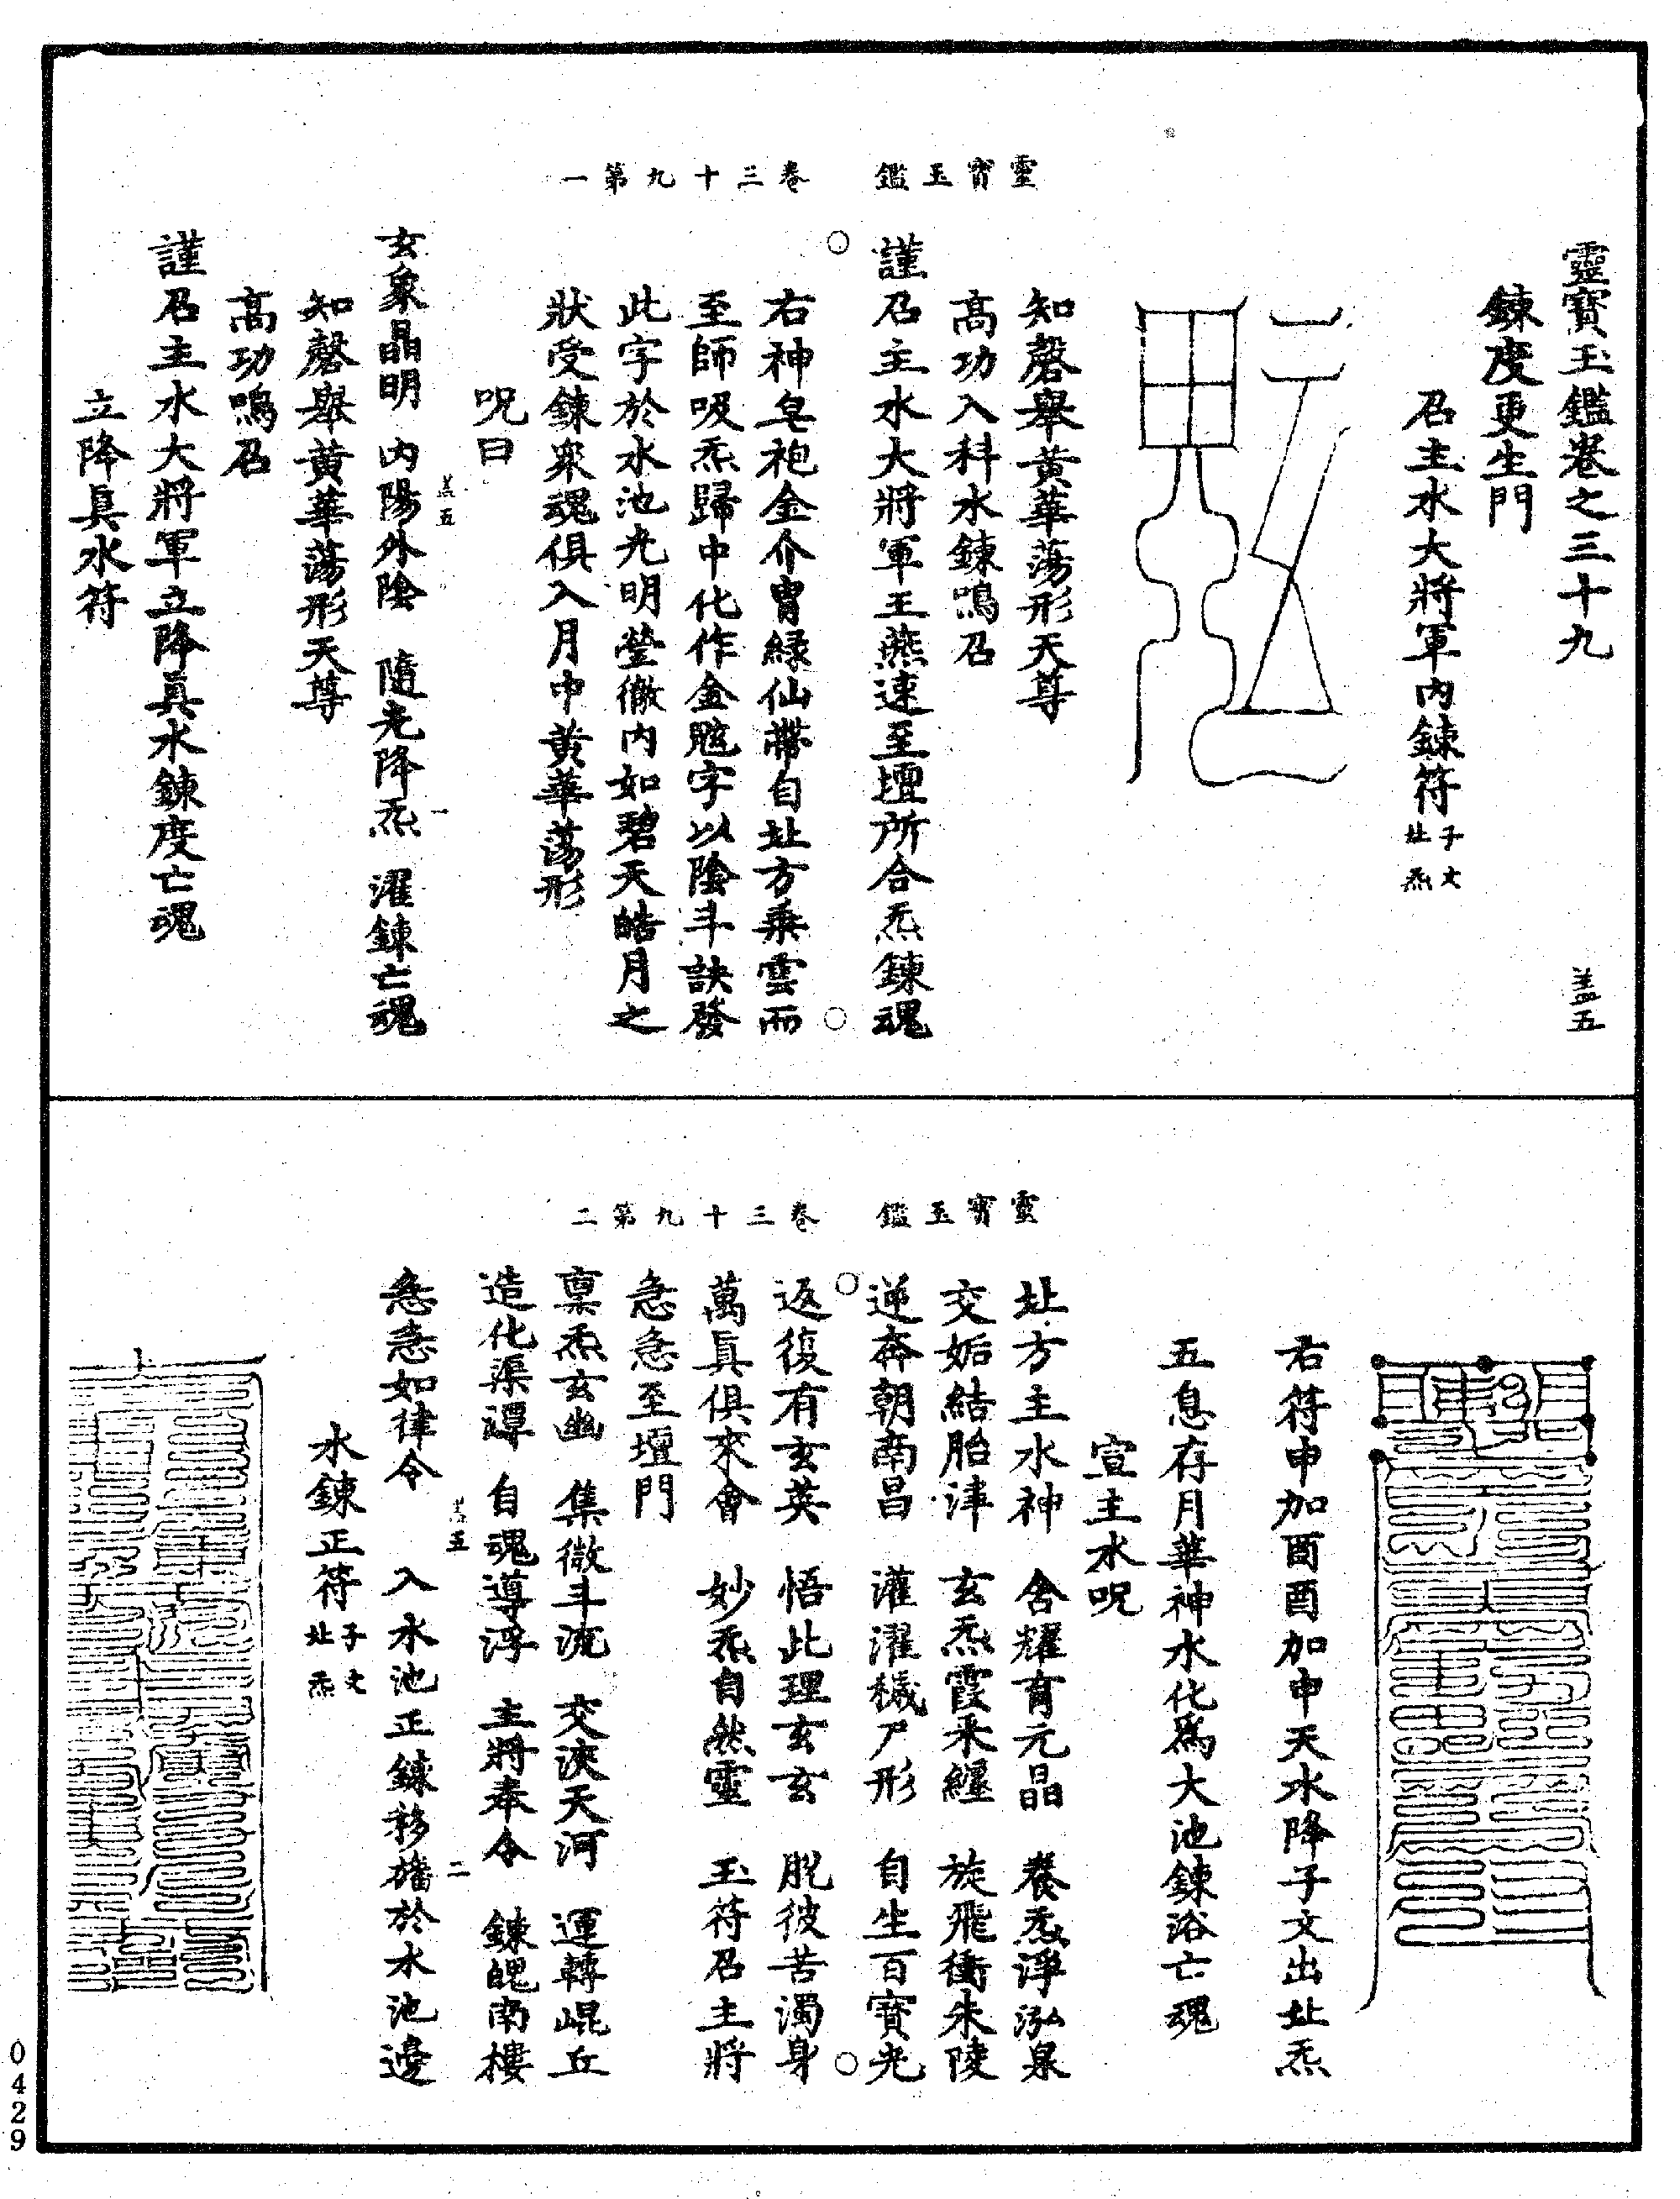 靈寶玉鑑 卷三十九第一
靈寶玉鑑卷之三十九 盖五
鍊度更生門
召主水大將軍內鍊符 子文 北炁
知磬舉黃華蕩形天尊
高功入科水鍊鳴召
謹召主水大將軍王燕速至壇所合炁鍊魂
右神皂袍金介冑緑仙帶自北方乗雲而
至師吸炁歸中化作金䀣字以陰斗訣發
此字於水池光明瑩徹內如碧天皓月之
狀受鍊衆魂俱入月中黃華蕩形
呪曰
玄象晶明 內陽外陰 隨光降炁 濯鍊亡魂
盖五 一
知磬舉黃華蕩形天尊
高功鳴召
謹召主水大將軍立降眞水鍊度亡魂
立降眞水符
靈寶玉鑑 卷三十九第二
右符申加酉酉加申天水降子文出北炁
五息存月華神水化爲大池鍊浴亡魂
宣主水呪
北方主水神 含耀育元晶 養炁淨泓泉
交姤結胎津 玄炁霞采纏 旋飛衝朱陵
逆奔朝南昌 灌濯穢尸形 自生百寳光
返復有玄英 悟此理玄玄 脫彼苦濁身
萬眞俱來會 妙炁自然靈 玉符召主將
急急至壇門
禀炁玄幽 集微斗沉 交浹天河 運轉崐丘
造化渠潭 自魂導浮 主將奉令 鍊魄南樓
盖五 二
急急如律令 入水池正鍊移旛於水池邊
水鍊正符 子文 北炁
0429